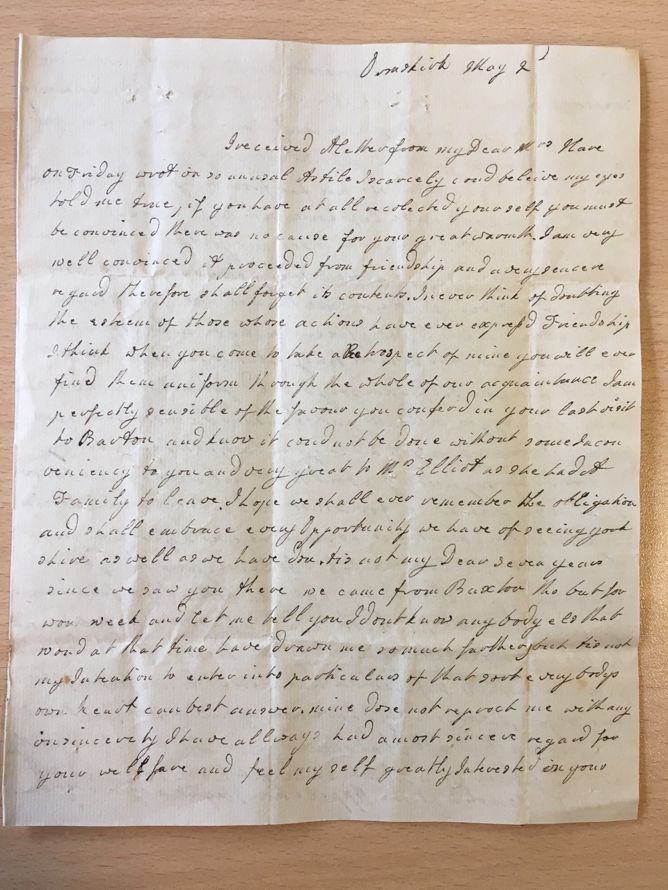 Ormskirk May 2d
I received A letter from my Dear Mrs Hare
on Friday wrot in so unusal A stile I scarcely coud beleive my eyes
told me true, if you have at all recolected your self you must
be convinced there was no cause for your great warmth. I am very
well convinced it proceeded from friendship and a very sencere
regard therefore shall forget its contents. I never think of doubting
the esteem of those whose actions have ever express'd Friendship
I think when you come to take a Retrospect of mine you will ever
find them uniform through the whole of our acquaintance I am
perfectly sensible of the favour you confer'd in your last visit
to Barton and know it coud not be done without some Incon
veniency to you and very great to Mrs Elliot as she had A
Family to leave. I hope we shall ever remember the obligation
and shall embrace every Opportunity we have of seeing york
shire as well as we have don. tis not my Dear seven years
since we saw you there we came from Buxton tho but for
won week and let me tell you I dont know any body els that
woud at that time have drawn me so much farther, but tis not
my Intention to enter into particulars of that sort every bodys
own heart can best answer. mine dose not reproch me with any
insincerity I have allways had a most sincere regard for
your wellfare and feel my self greatly Interested in your